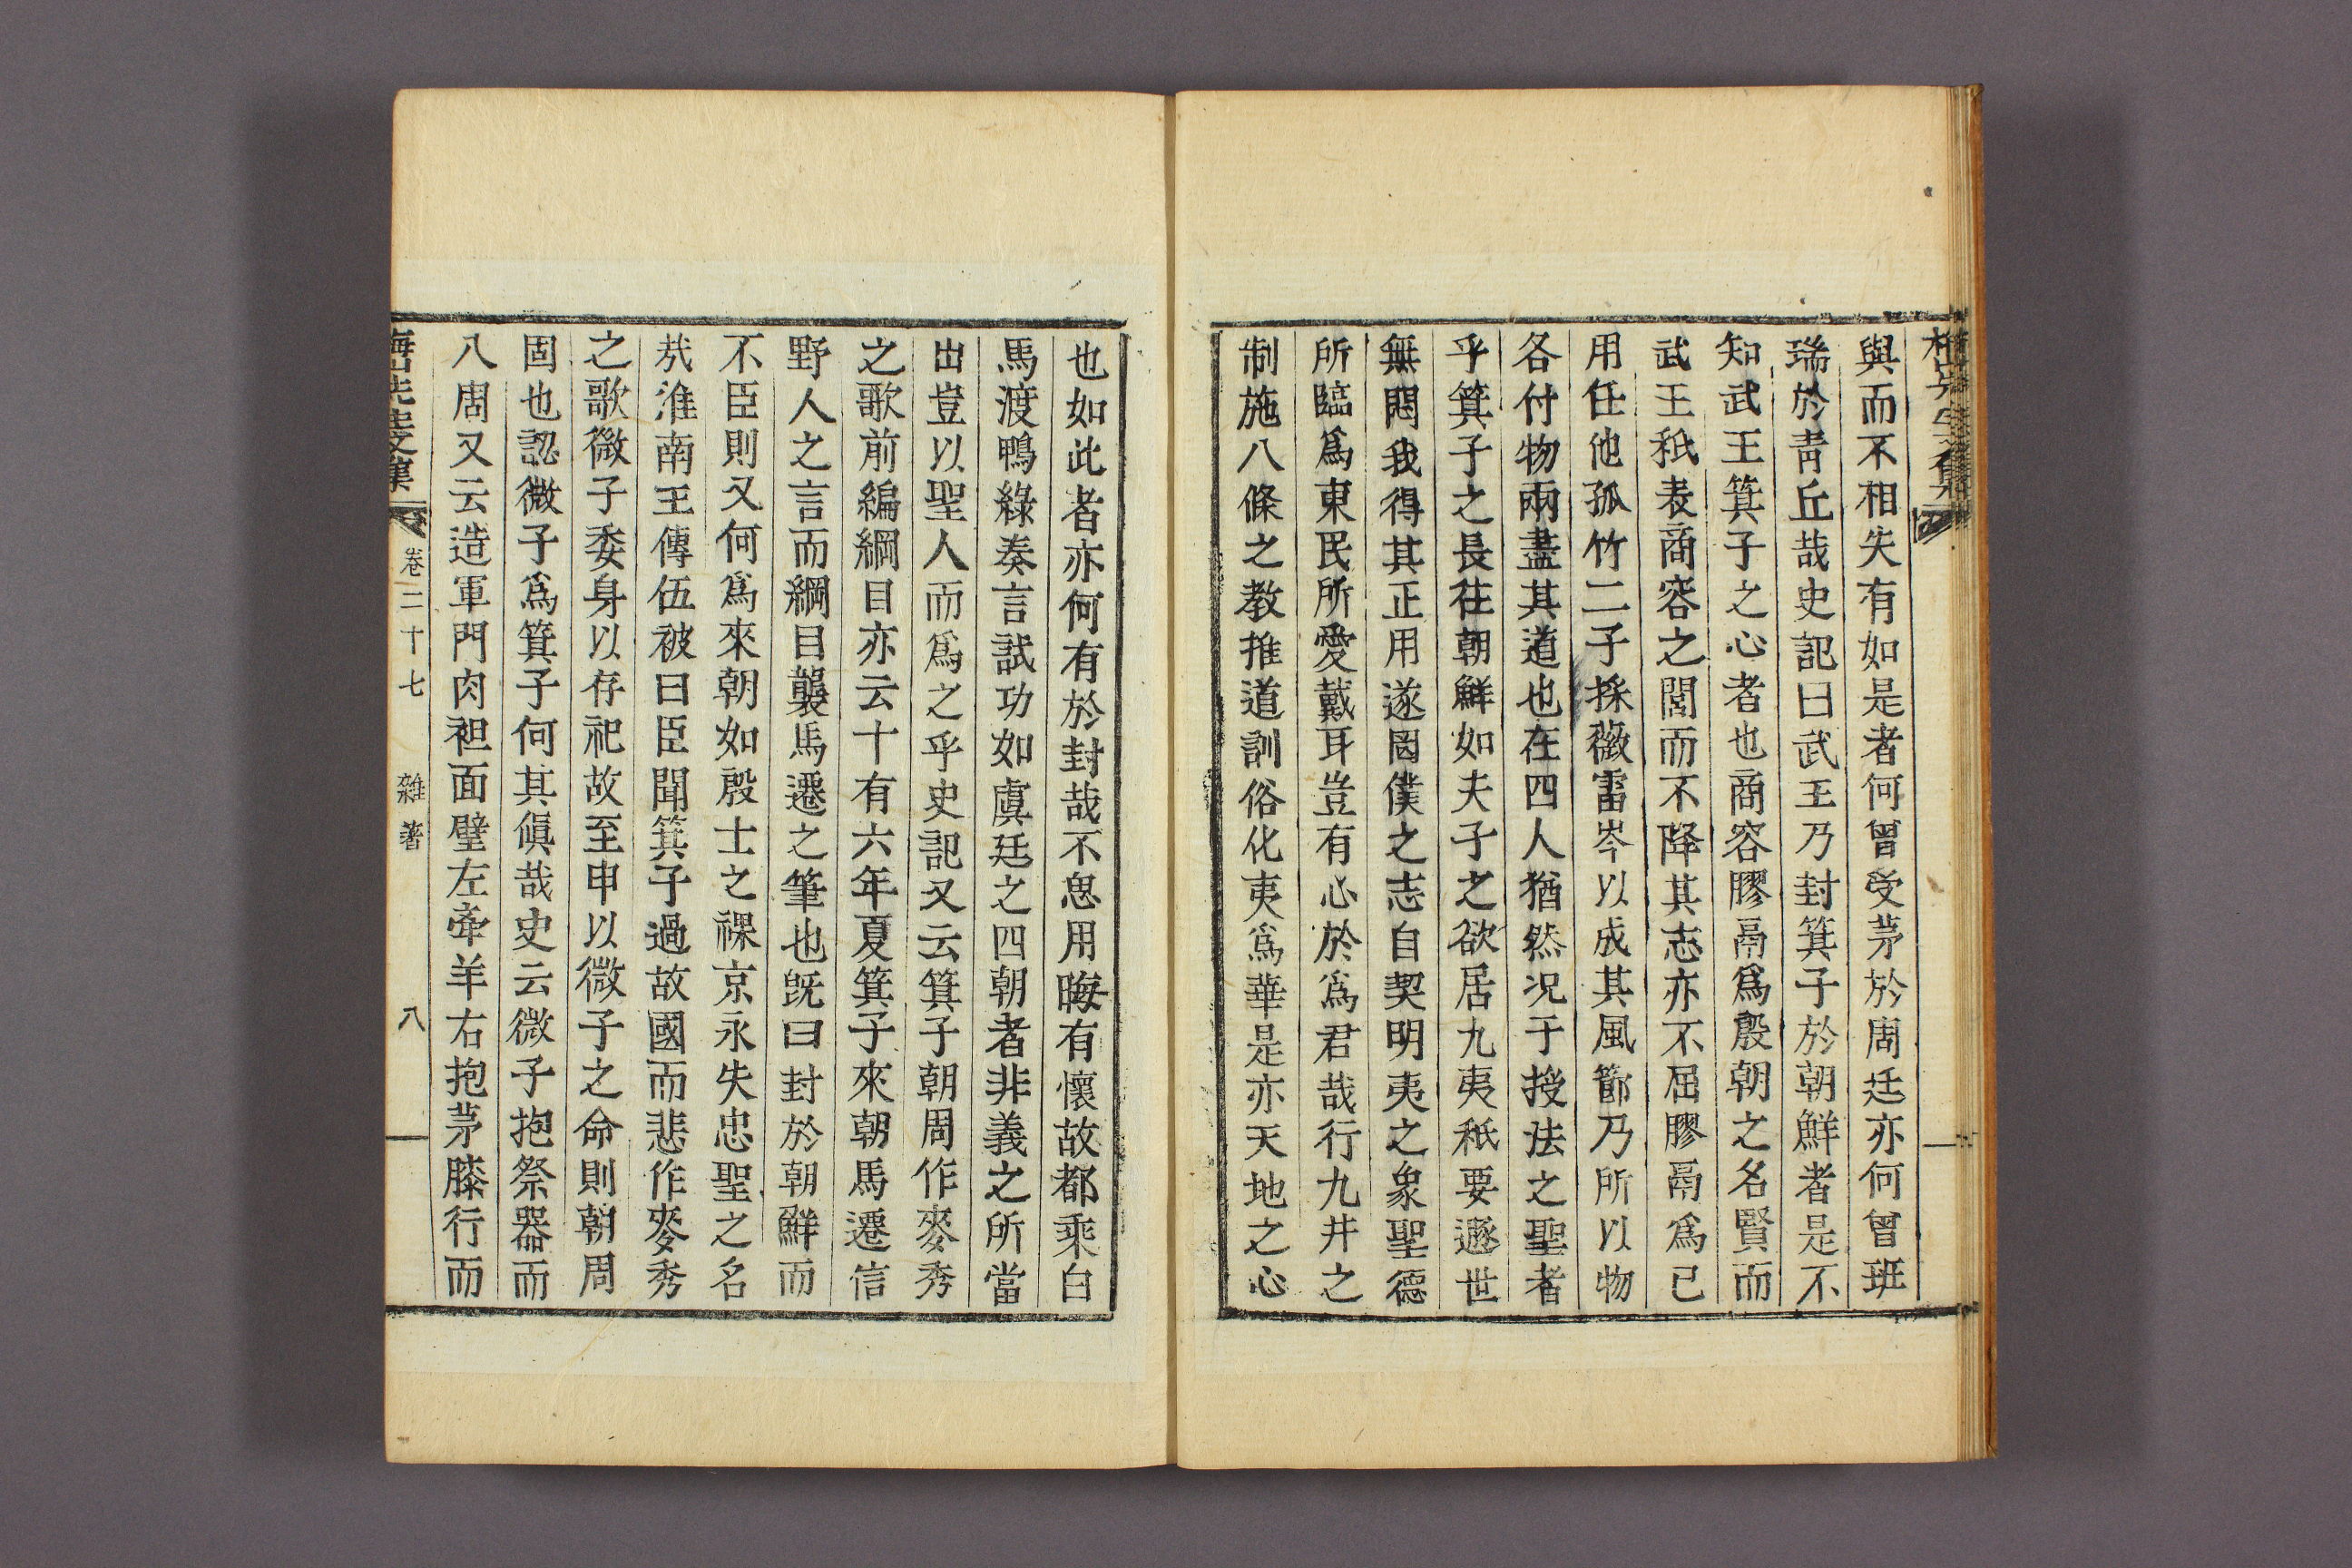 與而不相失有如是者何曾受茅於周廷亦何曾班
瑞於靑丘哉史記曰武王乃封箕子於朝鮮者是不
知武王箕子之心者也商容膠鬲爲殷朝之名賢而
武王秪表商容之閭而不降其志亦不屈膠鬲爲己
用任他孤竹二子採薇雷岑以成其風節乃所以物
各付物兩盡其道也在四人猶然况于授法之聖者
乎箕子之長往朝鮮如夫子之欲居九夷秪要遯世
無悶我得其正用遂罔僕之志自契明夷之象聖德
所臨爲東民所愛戴耳豈有心於爲君哉行九井之
制施八條之敎推道訓俗化夷爲華是亦天地之心
也如此者亦何有於封哉不思用晦有懷故都乘白
馬渡鴨綠奏言試功如虞廷之四朝者非義之所當
出豈以聖人而爲之乎史記又云箕子朝周作麥秀
之歌前編綱目亦云十有六年夏箕子來朝馬遷信
野人之言而綱目襲馬遷之筆也旣曰封於朝鮮而
不臣則又何爲來朝如殷士之祼京永失忠聖之名
㦲淮南王傳伍被曰臣聞箕子過故國而悲作麥秀
之歌微子委身以存祀故至申以微子之命則朝周
固也認微子爲箕子何其傎哉史云微子抱祭器而
入周又云造軍門肉袒面璧左牽羊右抱茅膝行而
梅山先生文集 卷二十七 雜著 八